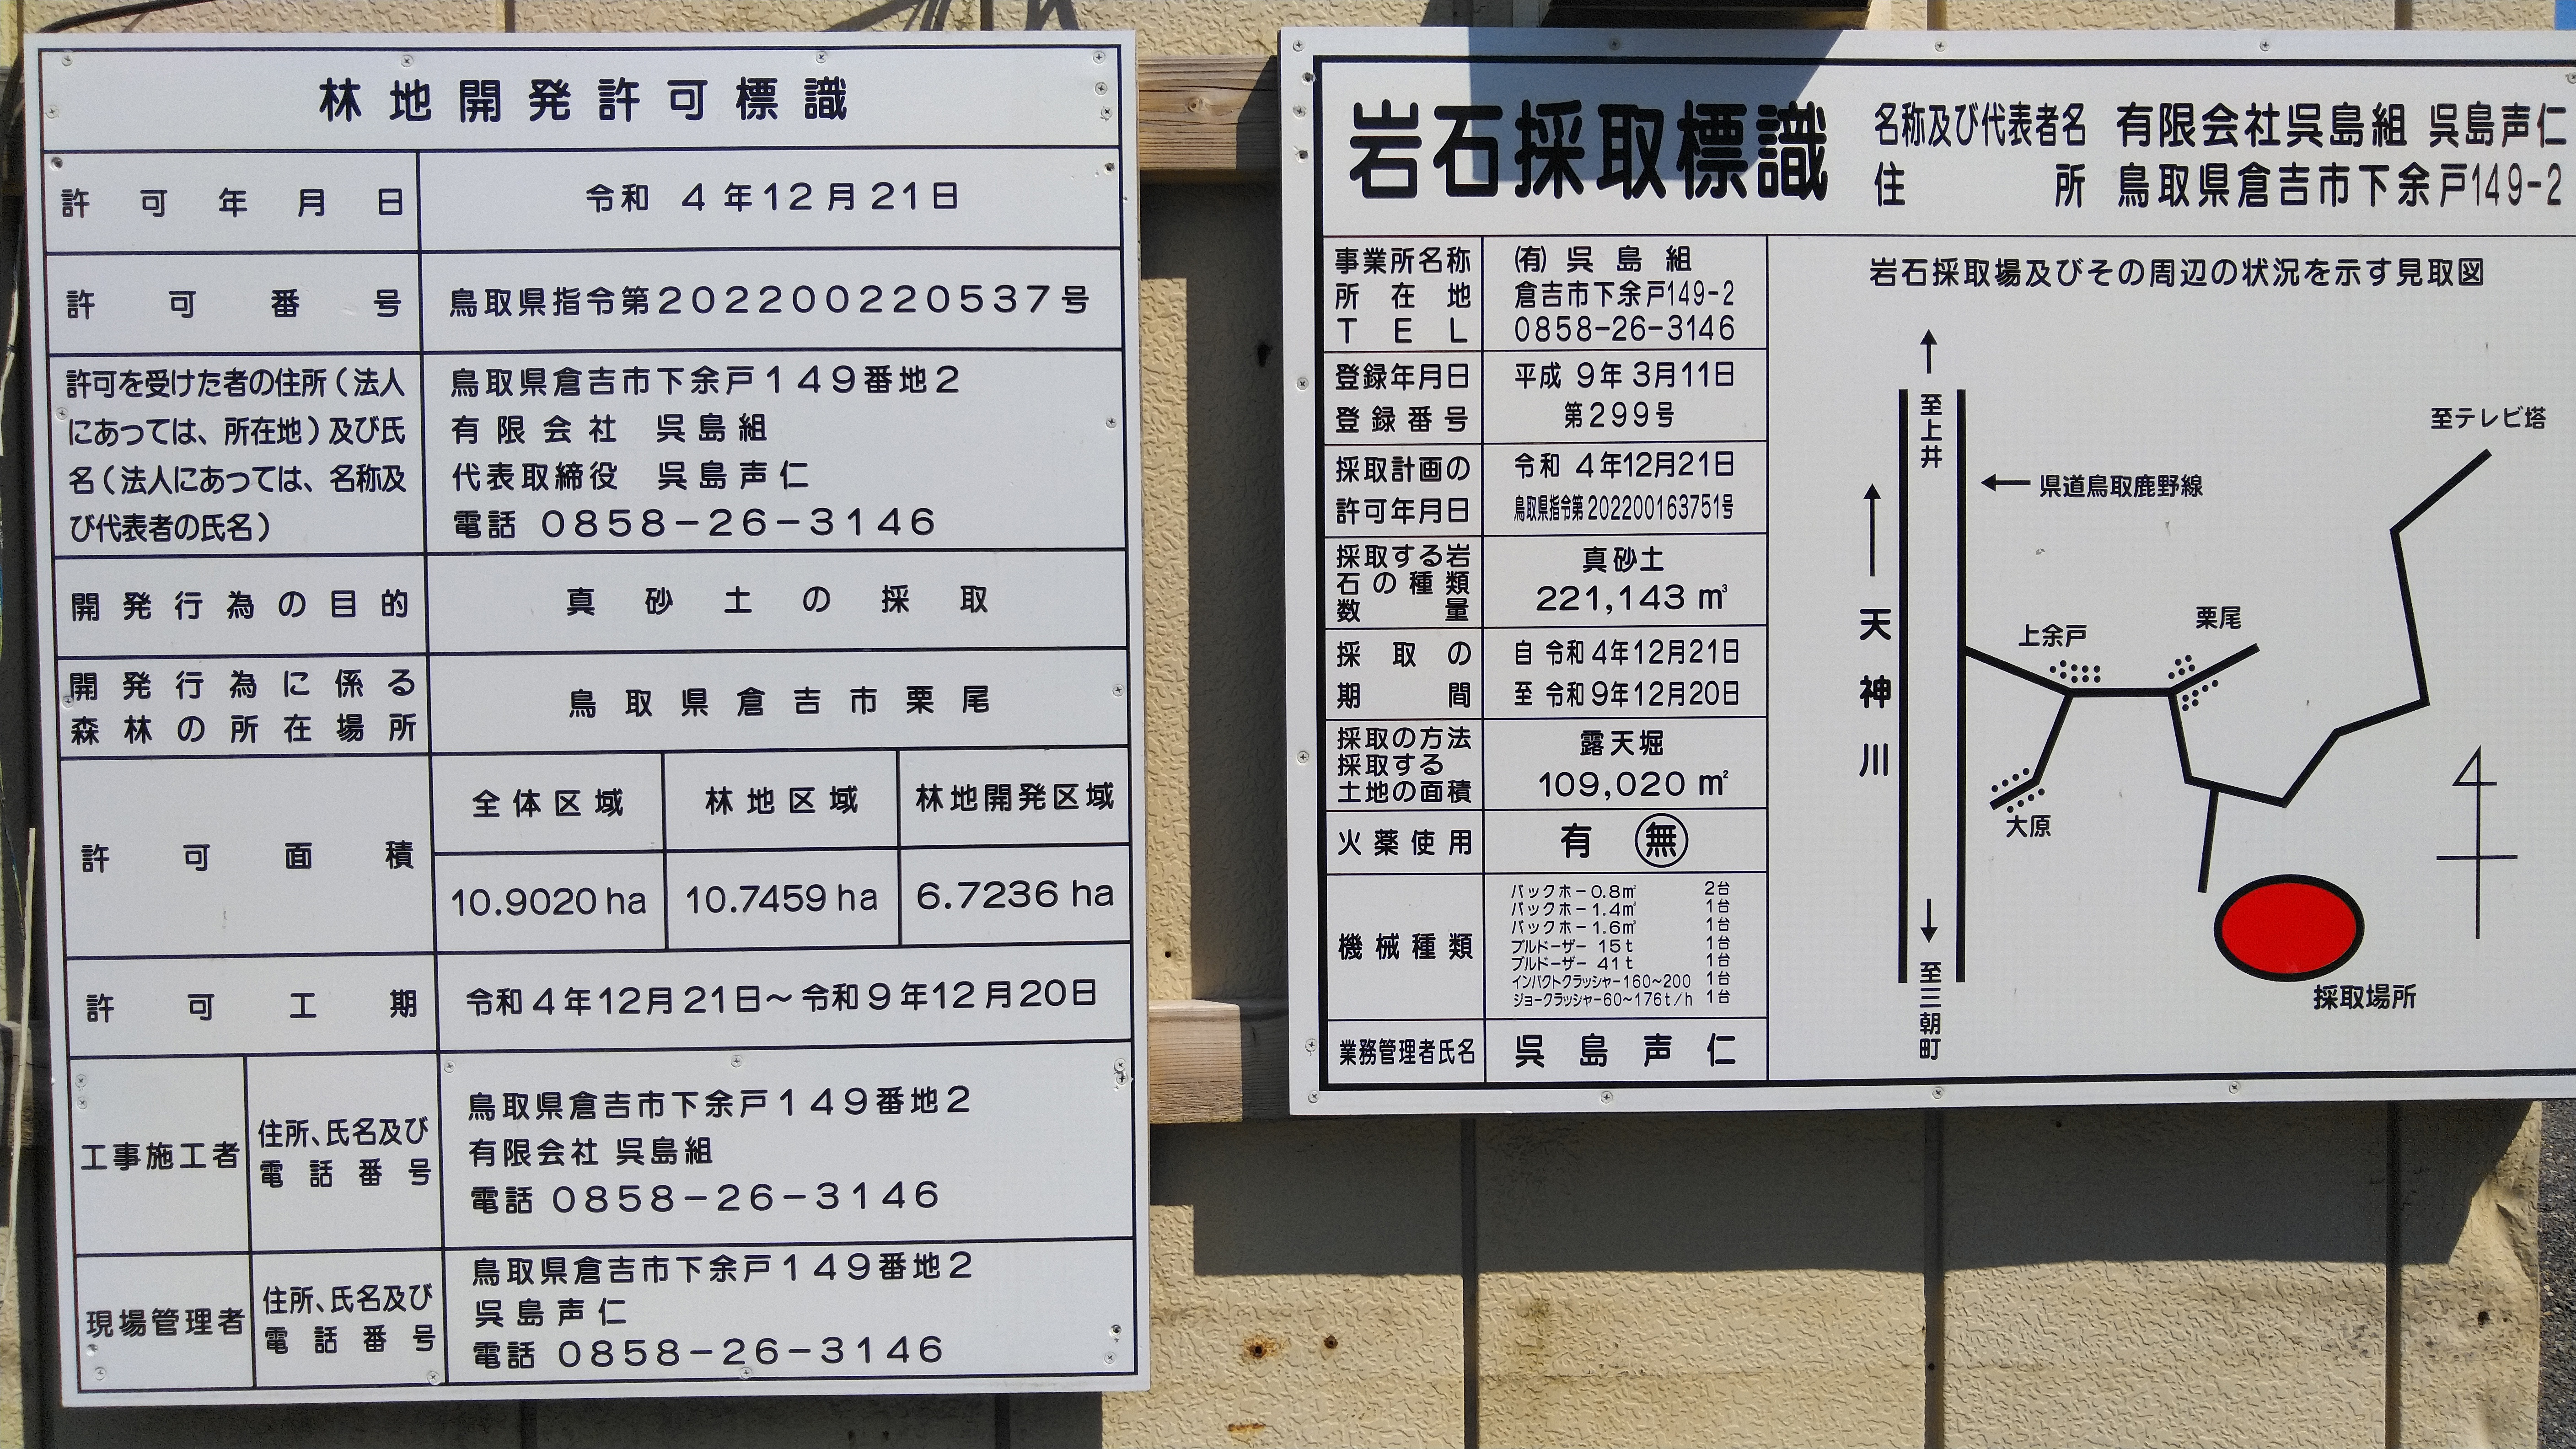 林地開発許可標識
許可年月日
令和 4年12月21日
許可番号
鳥取県指令第202200220537号
許可を受けた者の住所(法人
にあっては、所在地)及び氏
名(法人にあっては、名称及
び代表者の氏名)
鳥取県倉吉市下余戸149番地2
有限会社 呉島組
代表取締役 呉島声仁
電話 0858-26-3146
開発行為の目的
真砂土の採取
開発行為に係る
森林の所在場所
鳥取県倉吉市栗尾
許可面積
全体区域 林地区域 林地開発区域
10.9020 ha 10.7459 ha 6.7236 ha
許可工期
令和4年12月21日~令和9年12月20日
工事施工者
住所、氏名及び
電話番号
鳥取県倉吉市下余戸149番地2
有限会社 呉島組
電話 0858-26-3146
現場管理者
住所、氏名及び
電話番号
鳥取県倉吉市下余戸149番地2
呉島声仁
電話 0858-26-3146
岩石採取標識
名称及び代表者名 有限会社呉島組 呉島声仁
住所 鳥取県倉吉市下余戸149-2
事業所名称 (有)呉島組
所在地 倉吉市下余戸149-2
TEL 0858-26-3146
登録年月日 平成 9年 3月11日
登録番号 第299号
採取計画の 令和 4年12月21日
許可年月日 鳥取県指令第202200163751号
採取する岩
石の種類
数量
真砂土
221,143 m³
採取の 自 令和4年12月21日
期間 至 令和9年12月20日
採取の方法
採取する
土地の面積
露天堀
109,020 m²
火薬使用 有 無
機械種類
バックホー0.8㎥ 2台
バックホー1.4㎥ 1台
バックホー1.6㎥ 1台
ブルドーザー 15t 1台
ブルドーザー 41t 1台
インパクトクラッシャー160~200 1台
ジョークラッシャー60~176t/h 1台
業務管理者氏名 呉島声仁
岩石採取場及びその周辺の状況を示す見取図
至上井
県道鳥取鹿野線
至テレビ塔
天神川
上余戸
栗尾
大原
4
採取場所
至三朝町